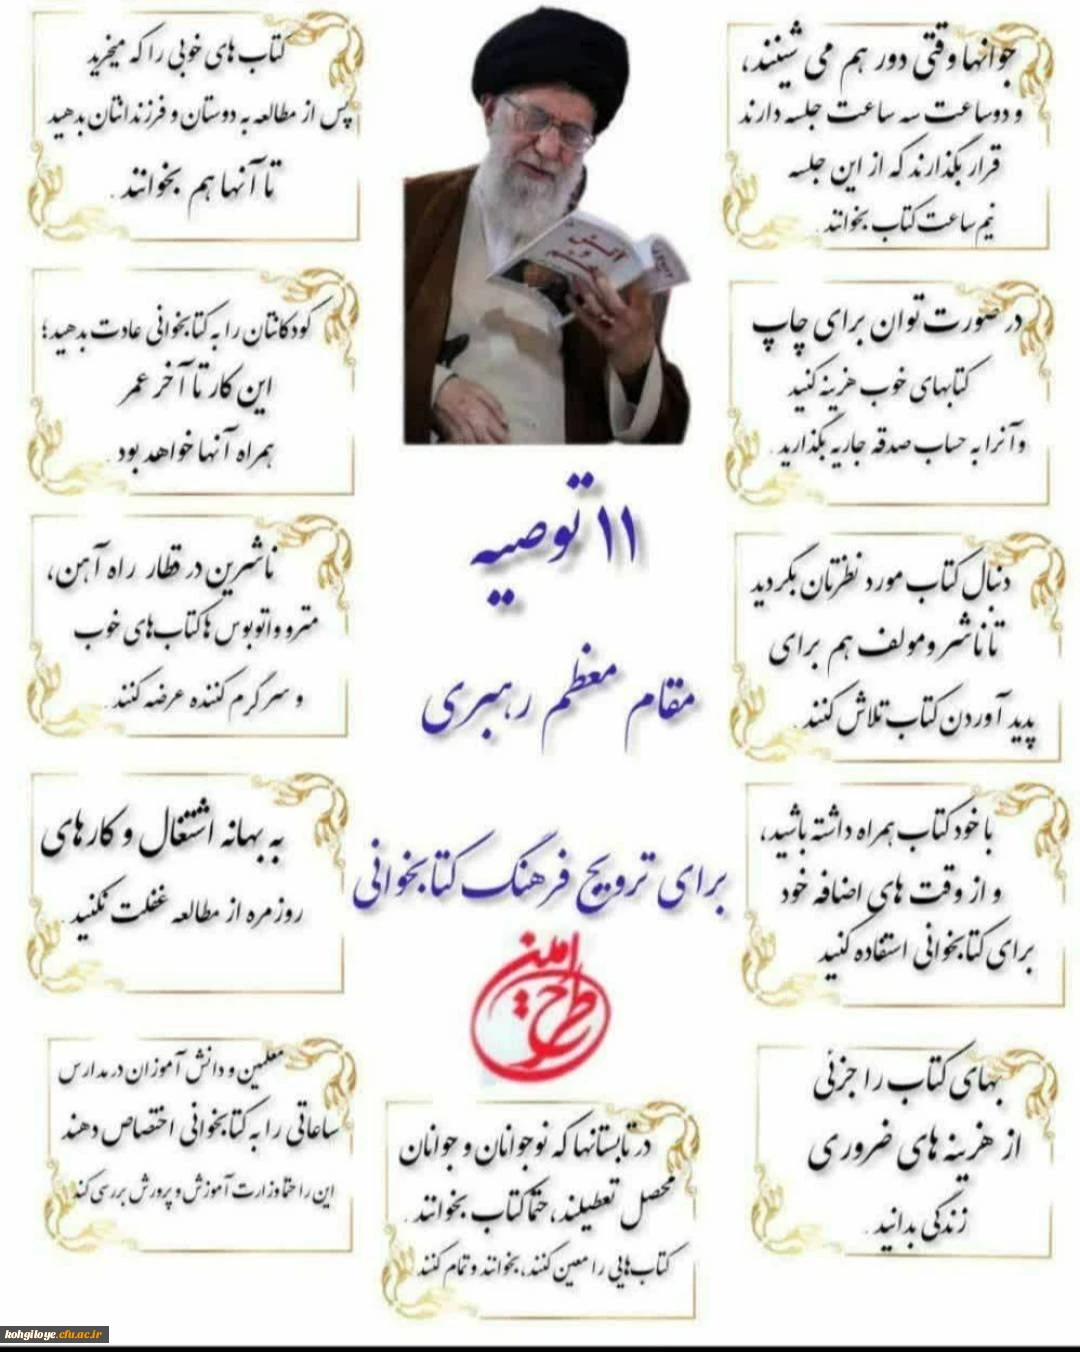 ۱۱ توصیه
مقام معظم رهبری
برای ترویج فرهنگ کتابخوانی
طرح امین
جوانها وقتی دور هم می نشینند،
و دوساعت سه ساعت جلسه دارند
قرار بگذارند که از این جلسه
نیم ساعت کتاب بخوانند.
در صورت توان برای چاپ
کتابهای خوب هزینه کنید
و آنرا به حساب صدقه جاریه بگذارید.
دنبال کتاب مورد نظرتان بگردید
تا ناشر و مولف هم برای
پدید آوردن کتاب تلاش کنند.
با خود کتاب همراه داشته باشید،
و از وقت های اضافه خود
برای کتابخوانی استفاده کنید
بهای کتاب را جزئی
از هزینه های ضروری
زندگی بدانید.
کتاب های خوبی را که میخرید
پس از مطالعه به دوستان و فرزندانتان بدهید
تا آنها هم بخوانند.
کودکانتان را به کتابخوانی عادت بدهید؛
این کار تا آخر عمر
همراه آنها خواهد بود.
ناشرین در قطار راه آهن،
مترو و اتوبوس ها کتاب های خوب
و سرگرم کننده عرضه کنند.
به بهانه اشتغال و کارهای
روزمره از مطالعه غفلت نکنید.
معلمین و دانش آموزان در مدارس
ساعاتی را به کتابخوانی اختصاص دهند
این را حتما وزارت آموزش و پرورش بررسی کند
در تابستانها که نوجوانان و جوانان
محصل تعطیلند، حتما کتاب بخوانند.
کتاب هایی را معین کنند، بخوانند و تمام کنند
kohgiloye.cfu.ac.ir